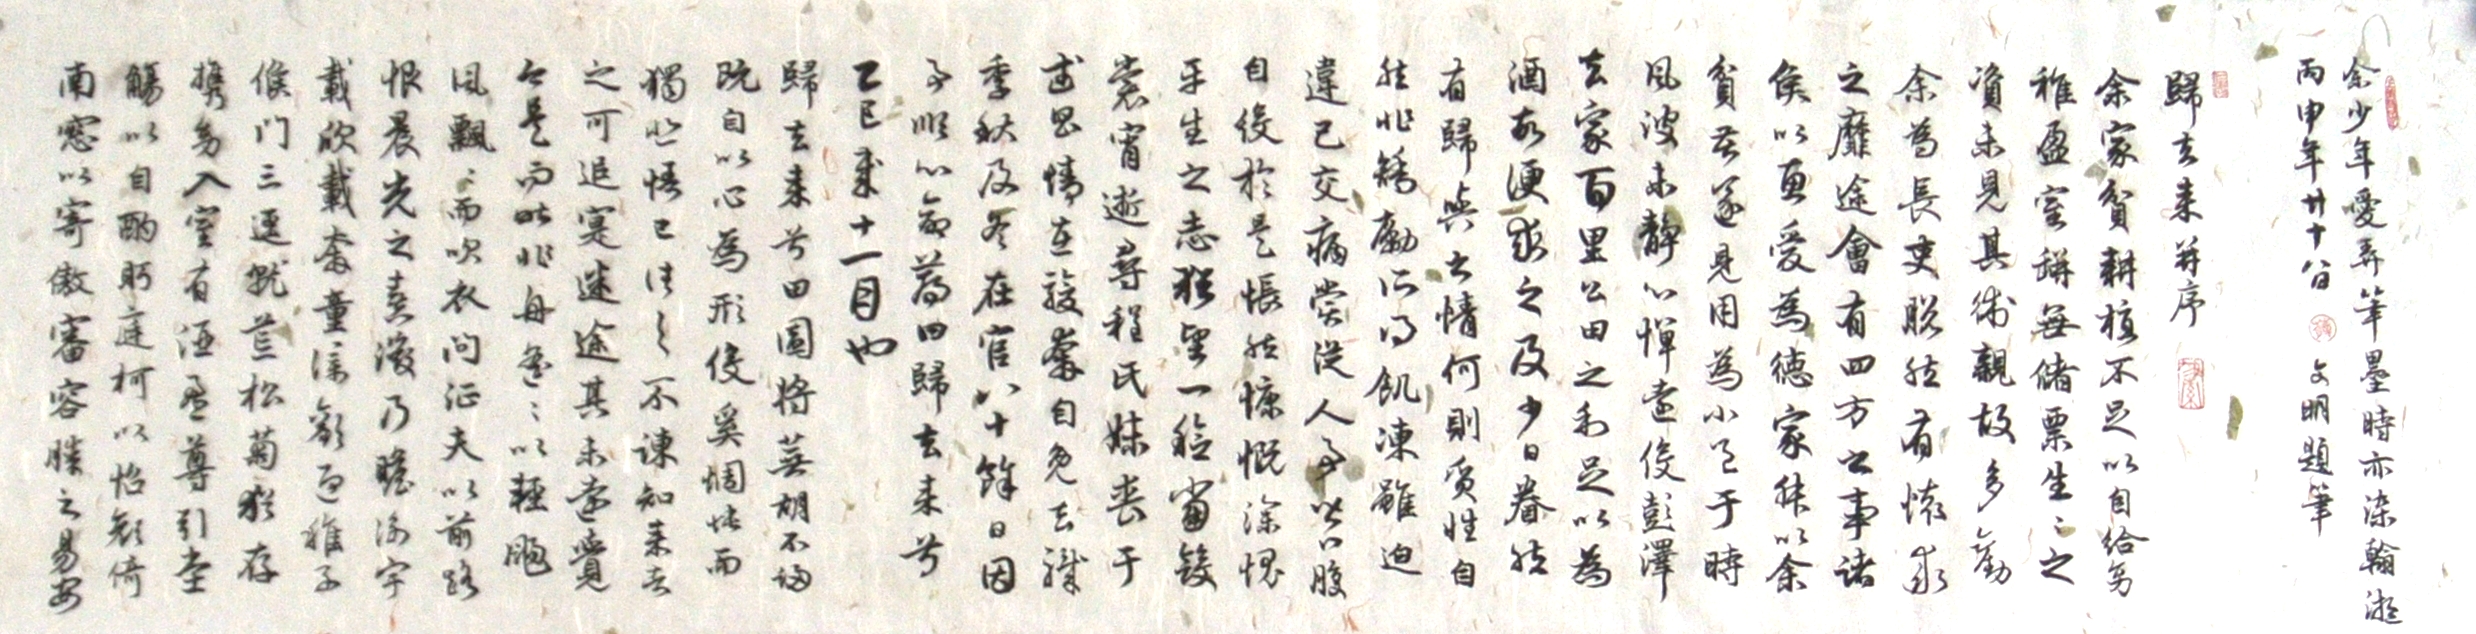 余少年愛弄筆墨時亦染翰遊
丙申年廿十八日 文明題筆
歸去來并序
余家貧耕植不足以自給幼
稚盈室缾無儲粟生〻之
資未見其術親故多勸
余為長吏脫然有懷求
之靡途會有四方之事諸
侯以惠愛為德家叔以余
貧苦遂見用為小邑于時
風波未靜心憚遠役彭澤
去家百里公田之利足以為
酒故便求之及少日眷然
有歸與之情何則質性自
然非矯勵所得飢凍雖迫
違已交病嘗從人事皆口腹
自役於是悵然慷慨深愧
平生之志猶望一稔當斂
裳宵逝尋程氏妹喪于
武昌情在駿奔自免去職
季秋及冬在官八十餘日因
事順心命篇曰歸去來兮
乙巳歲十一月也
歸去來兮田園將蕪胡不歸
既自以心為形役奚惆悵而
獨悲悟已往之不諫知來者
之可追寔迷途其未遠覺
今是而昨非舟遙〻以輕颺
風飄〻而吹衣問征夫以前路
恨晨光之熹微乃瞻衡宇
載欣載奔童僕歡迎稚子
候門三逕就荒松菊猶存
攜幼入室有酒盈尊引壺
觴以自酌眄庭柯以怡顏倚
南窓以寄傲審容膝之易安